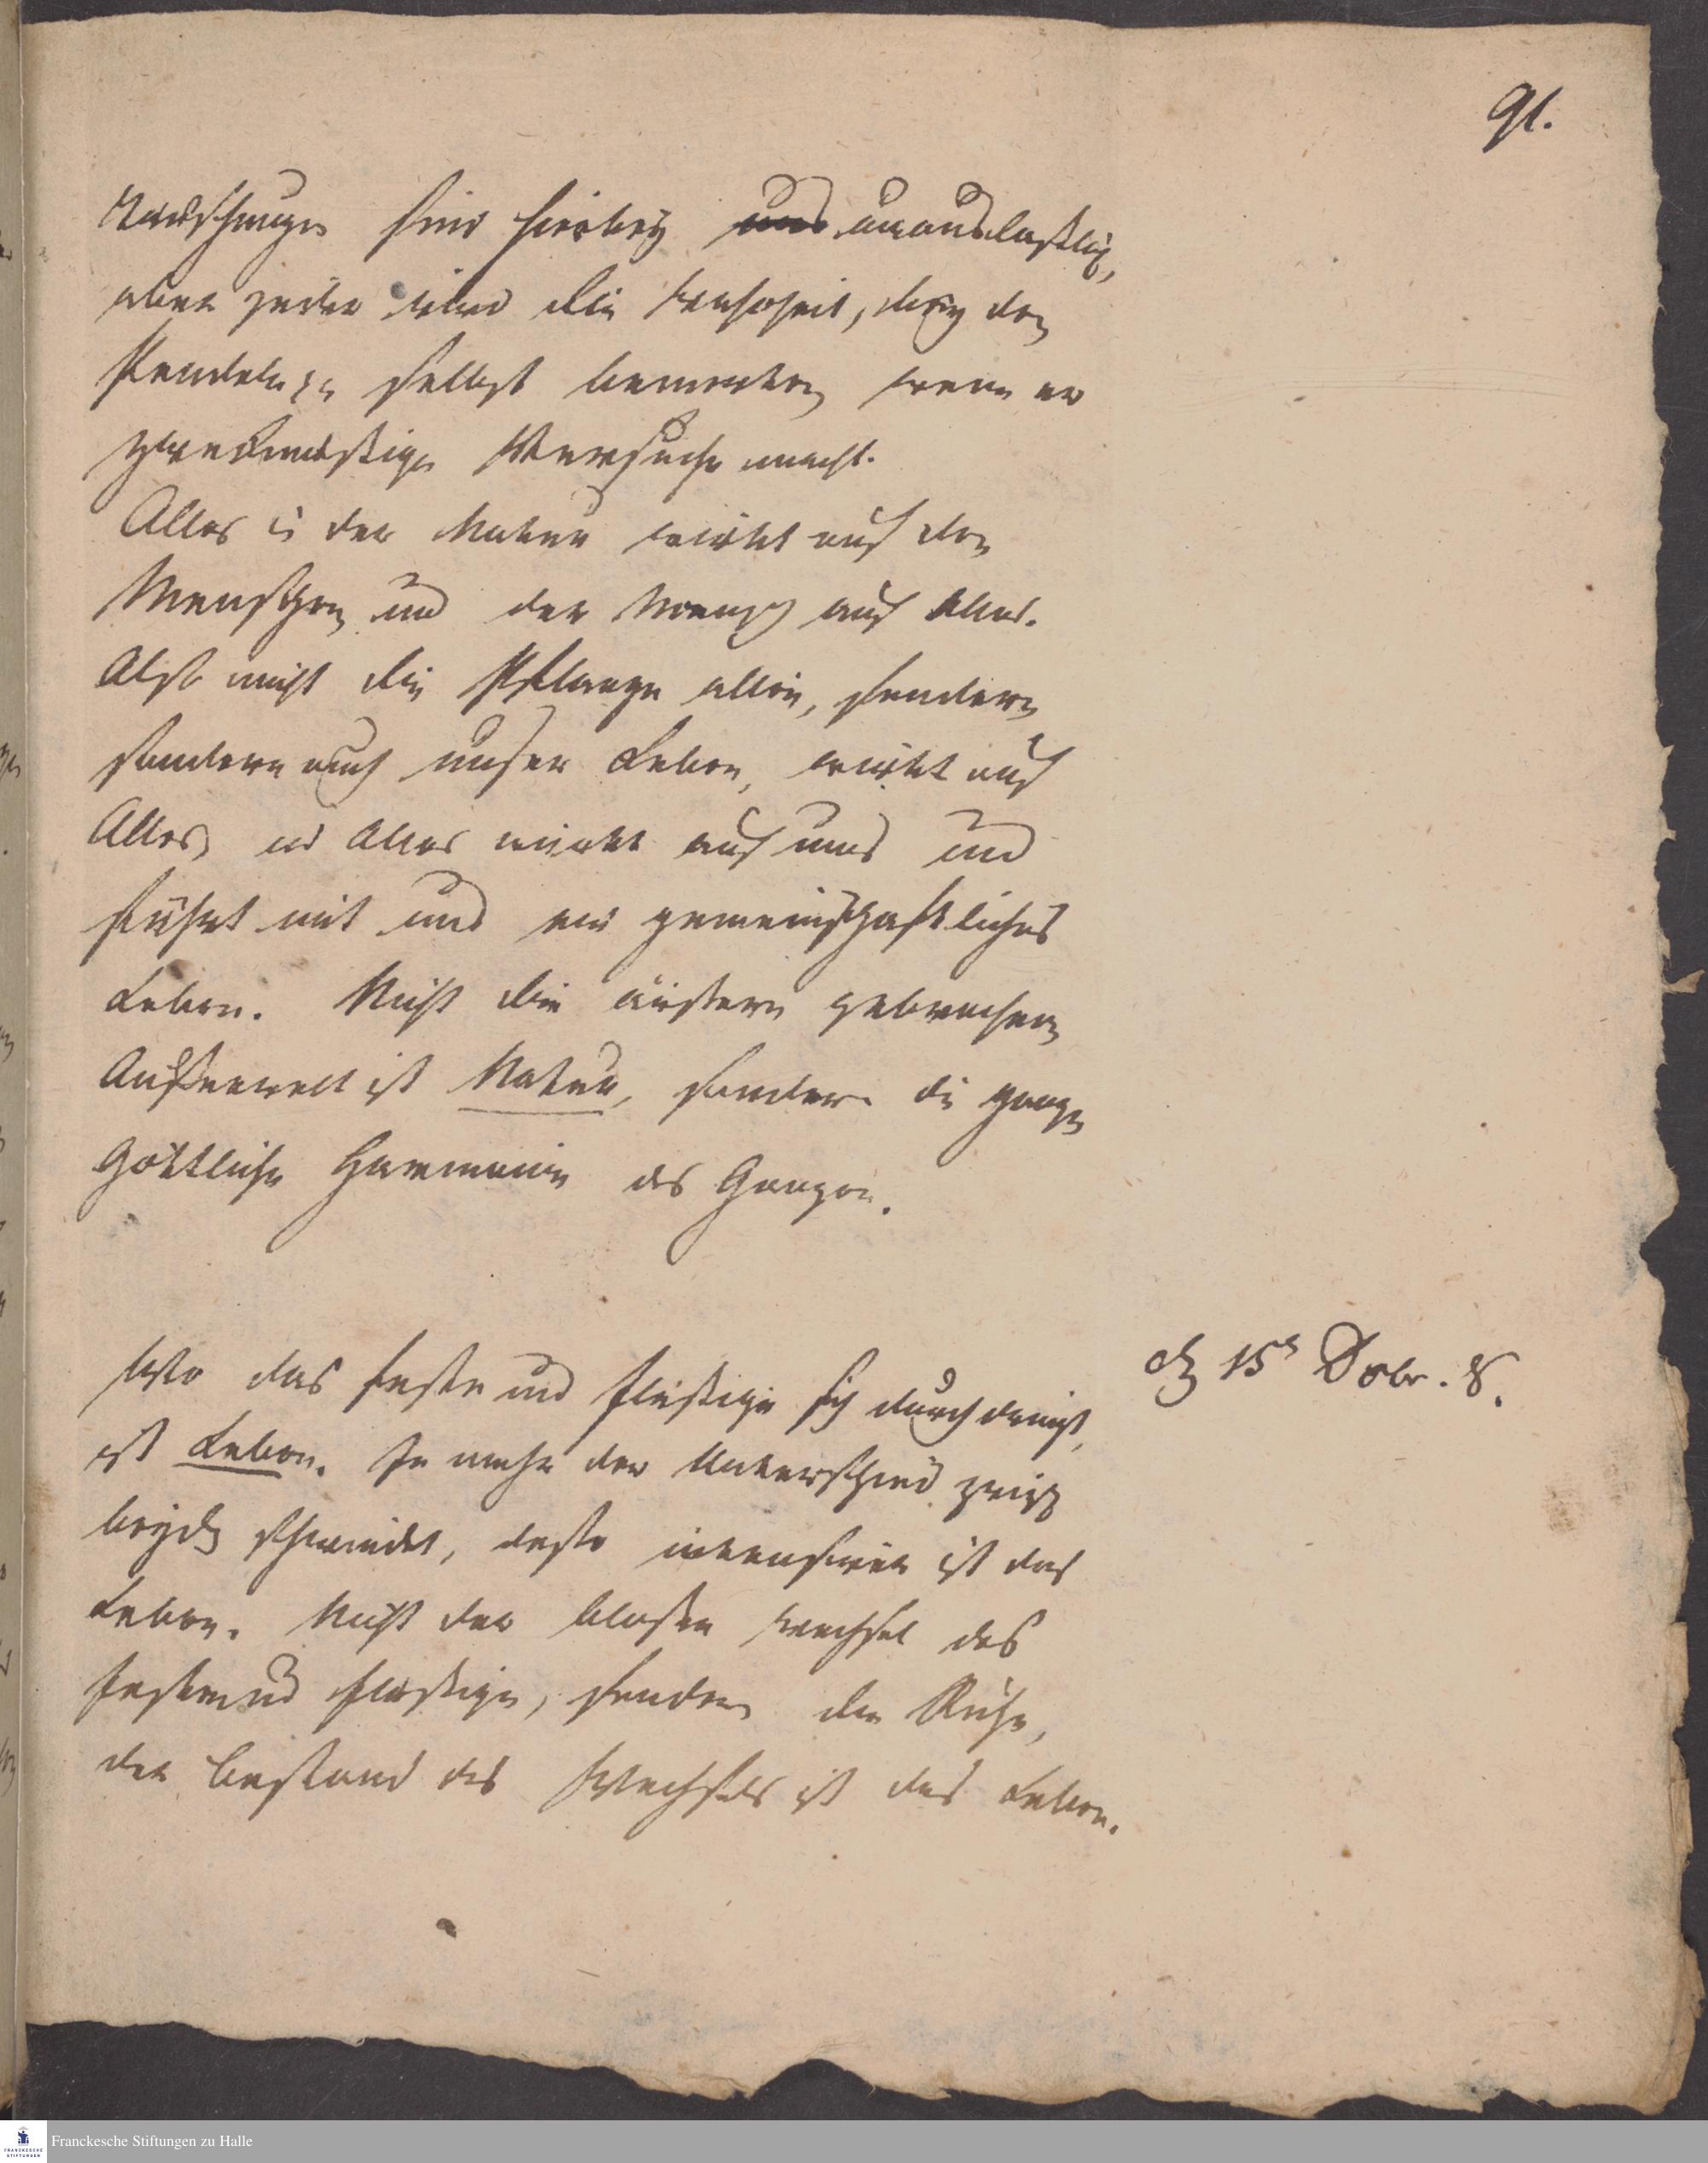 91.
Täuschungen sind hierbey uns unausbleiblich,
aber jeder wird die Wahrheit, bey den
Pendeln selbst bemerken, wenn er
zweckmäßige Versuche macht.
Alles in der Natur wirkt auf den
Menschen und der Mensch auf Alles.
Also nicht die Pflanze allein, sondern
sondern auch unser Leben, wirkt auf
Alles, und Alles wirkt auf uns und
führt mit uns ein gemeinschaftliches
Leben. Nicht die äußere gebrochene
Außenwelt ist Natur, sondern die ganze
Göttliche Harmonie des Ganzen.
d 15t Dcbr. 8.
Wo das feste und flüßige sich durchdringt,
ist Leben. Je mehr der Unterschied zwisch
beyden schwindet, desto intensiver ist das
Leben. Nicht der bloße Wechsel des
festen und flüßigen, sondern die Ruhe,
der Bestand des Wechsels ist das Leben.
Franckesche Stiftungen zu Halle